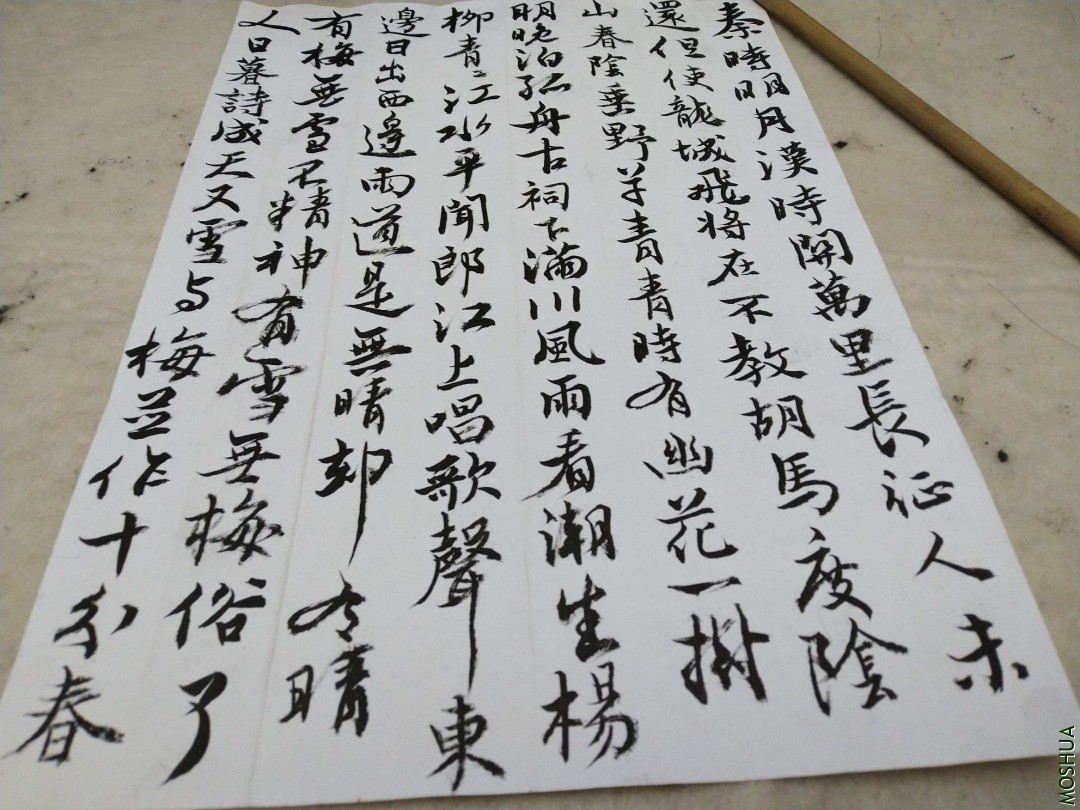 秦時明月漢時關萬里長征人未
還但使龍城飛將在不教胡馬度陰
山春陰垂野草青青時有幽花一樹
明晚泊孤舟古祠下滿川風雨看潮生楊
柳青〻江水平聞郎江上唱歌聲東
邊日出西邊雨道是無晴却有晴
有梅無雪不精神有雪無梅俗了
人日暮詩成天又雪与梅並作十分春
MOSHUA